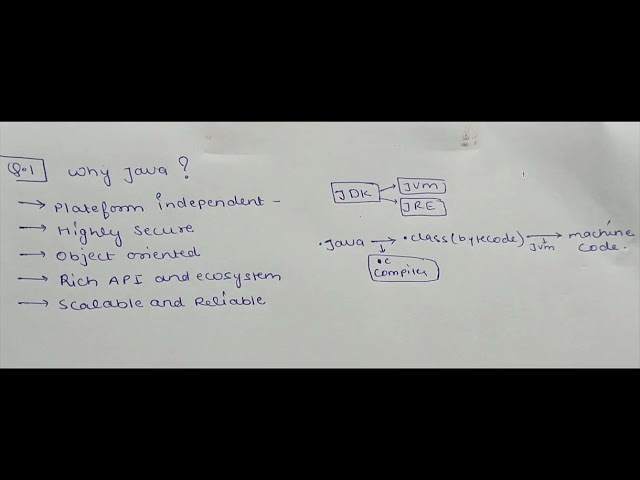 Q.1 Why Java?
→ Plateform independent -
→ Highly Secure
→ Object oriented
→ Rich API and ecosystem
→ Scalable and Reliable
JDK
JVM
JRE
.Java → .class(bytecode) → machine
JVM code.
.c
Compiler